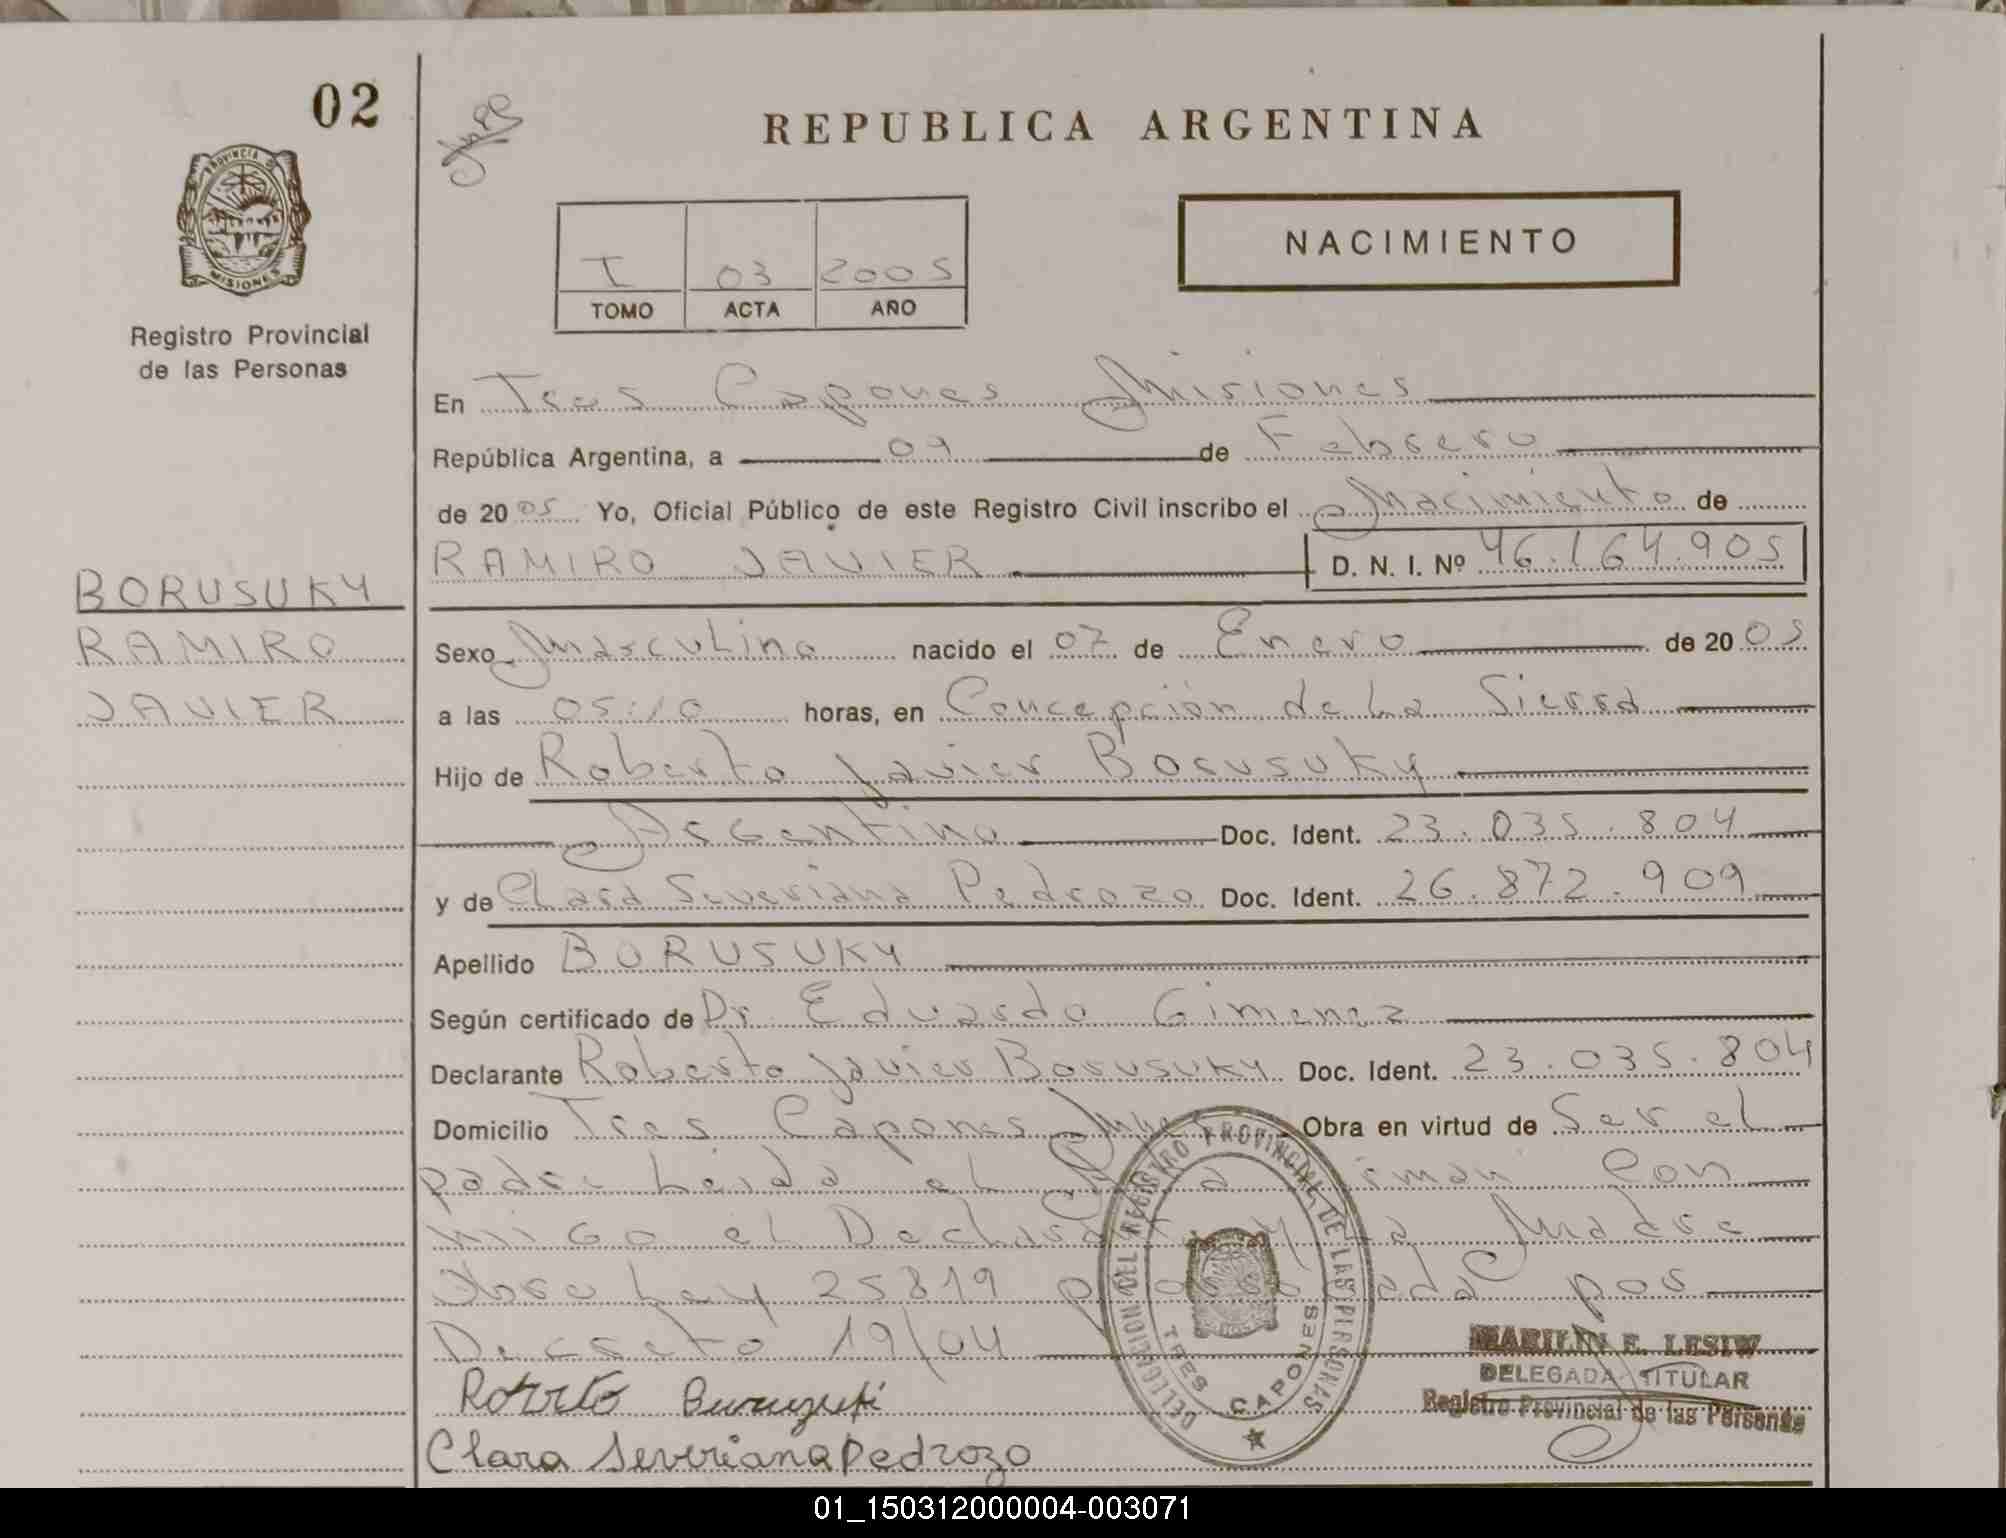 02
REPUBLICA ARGENTINA
PROVINCIA D
MISIONES
Registro Provincial
de las Personas
NACIMIENTO
I 03 2005
TOMO ACTA AÑO
En Tres Capones Misiones
República Argentina, a 09 de Febrero
de 2005 Yo, Oficial Público de este Registro Civil inscribo el Nacimiento de
RAMIRO JAVIER D. N. I. Nº 46.164.905
BORUSUKY
RAMIRO
JAVIER
Sexo Masculino nacido el 07 de Enero de 2005
a las 05:10 horas, en Concepción de La Sierra
Hijo de Roberto Javier Borusuky
Argentino Doc. Ident. 23.035.804
y de Clara Severiana Pedrozo Doc. Ident. 26.872.909
Apellido BORUSUKY
Según certificado de Dr. Eduardo Gimenez
Declarante Roberto Javier Borusuky Doc. Ident. 23.035.804
Domicilio Tres Capones Obra en virtud de Ser el
padre Leida el firman Con
migo el Declarante y La Madre
Ley 25819 por
Decreto 19/04
DELEGACION DEL REGISTRO PROVINCIAL DE LAS PERSONAS
TRES CAPONES
MARILIN E. LESIW
DELEGADA TITULAR
Registro Provincial de las Personas
Clara Severiana Pedrozo
01_150312000004-003071